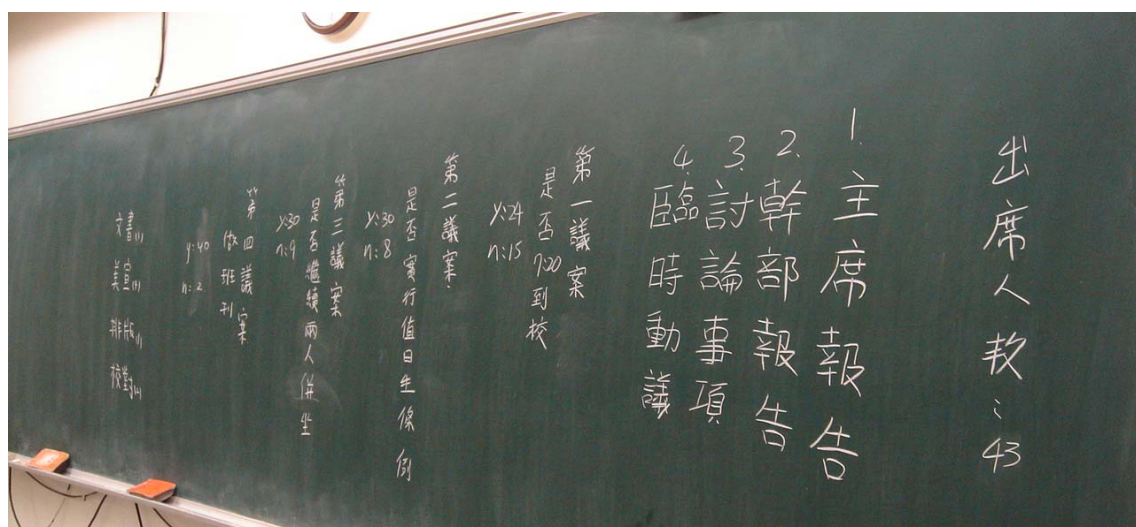 出席人数:43
1.主席報告
2.幹部報告
3.討論事項
4.臨時動議
第一議案
是否7:20到校
y:24
n:15
第二議案:
是否實行值日生條例
y:30
n:8
第三議案
是否繼續兩人併坐
y:30
n:9
第四議案
做班刊
y:40
n:2
文書(1)
美宣(1)
排版(1)
校對(1)